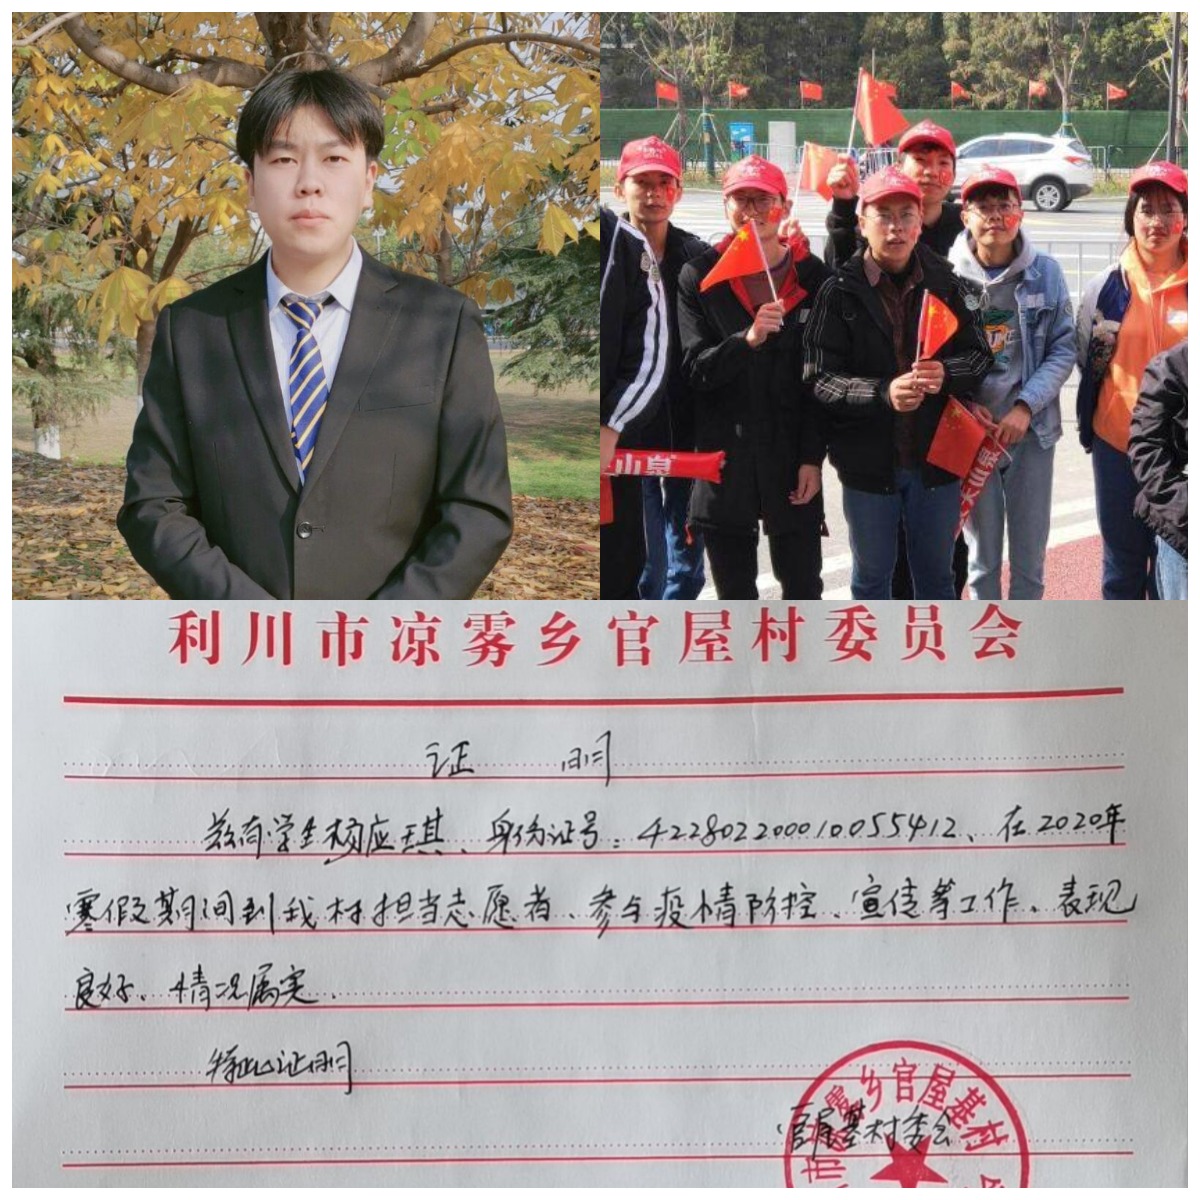 山泉
夫山泉
利川市凉雾乡官屋村委员会
证 明
兹有学生杨应琪、身份证号：422802200010055412、在2020年
寒假期间到我村担当志愿者、参与疫情防控、宣传等工作、表现
良好、情况属实.
特此证明
官屋基村委会
市凉雾乡官屋基村